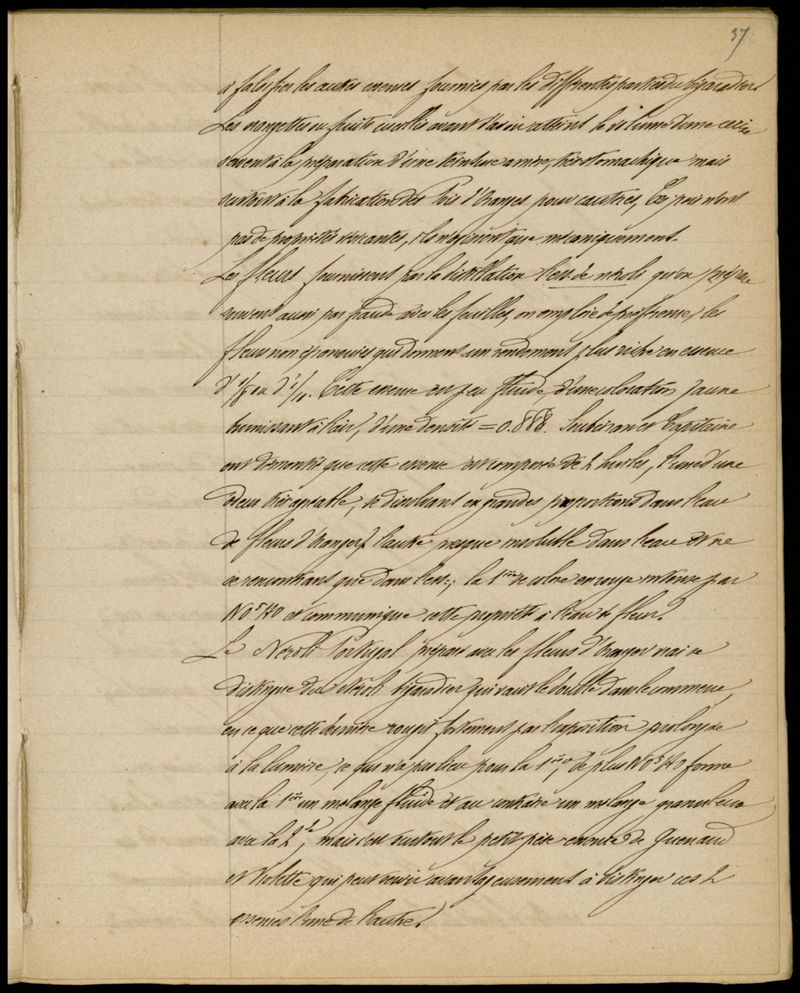 37
à falsifier les autres essences fournies par les différentes parties du bigaradier
Les orangettes ou fruits cueillis avant d'avoir atteint le volume d'une cerise
servent à la préparation d'une teinture amère, très stomachique mais
surtout à la fabrication des Pois d'Oranges pour cautères, Ces pois n'ont
pas de propriétés vésicantes, ils n'agissent que mécaniquement.
Les fleurs fournissent par la distillation l'ess. de néroli qu'on prépare
souvent aussi par fraude avec les feuilles, on emploie de préférence, les
fleurs non épanouies qui donnent un rendement plus riche en essence
Cette essence est peu fluide, d'une coloration jaune
brunissant à l'air, d'une densité = 0.888. Soubeiran et Capitaine
ont démontré que cette essence est composée de 2 huiles, l'une d'une
odeur très agréable, se dissolvant en grandes proportions dans l'eau
de fleurs d'Oranger l'autre presque insoluble dans l'eau et ne
se rencontrant que dans l'ess.; la 1ère se colore en rouge intense par
SO3HO et communique cette propriété à l'eau de fleur.
Le Néroli Portugal préparé avec les fleurs d'Oranger vrai se
distingue du Néroli bigaradier qui vaut le double dans le commerce,
en ce que cette dernière rougit fortement par l'exposition prolongée
à la lumière, ce qui n'a pas lieu pour la 1ère, de plus SO3HO forme
avec la 1ère un mélange fluide et au contraire un mélange granuleux
avec la 2e, mais c'est surtout le petit pèse-essence de
et Violette qui peut servir avantageusement à distinguer ces 2
essences l'une de l'autre.